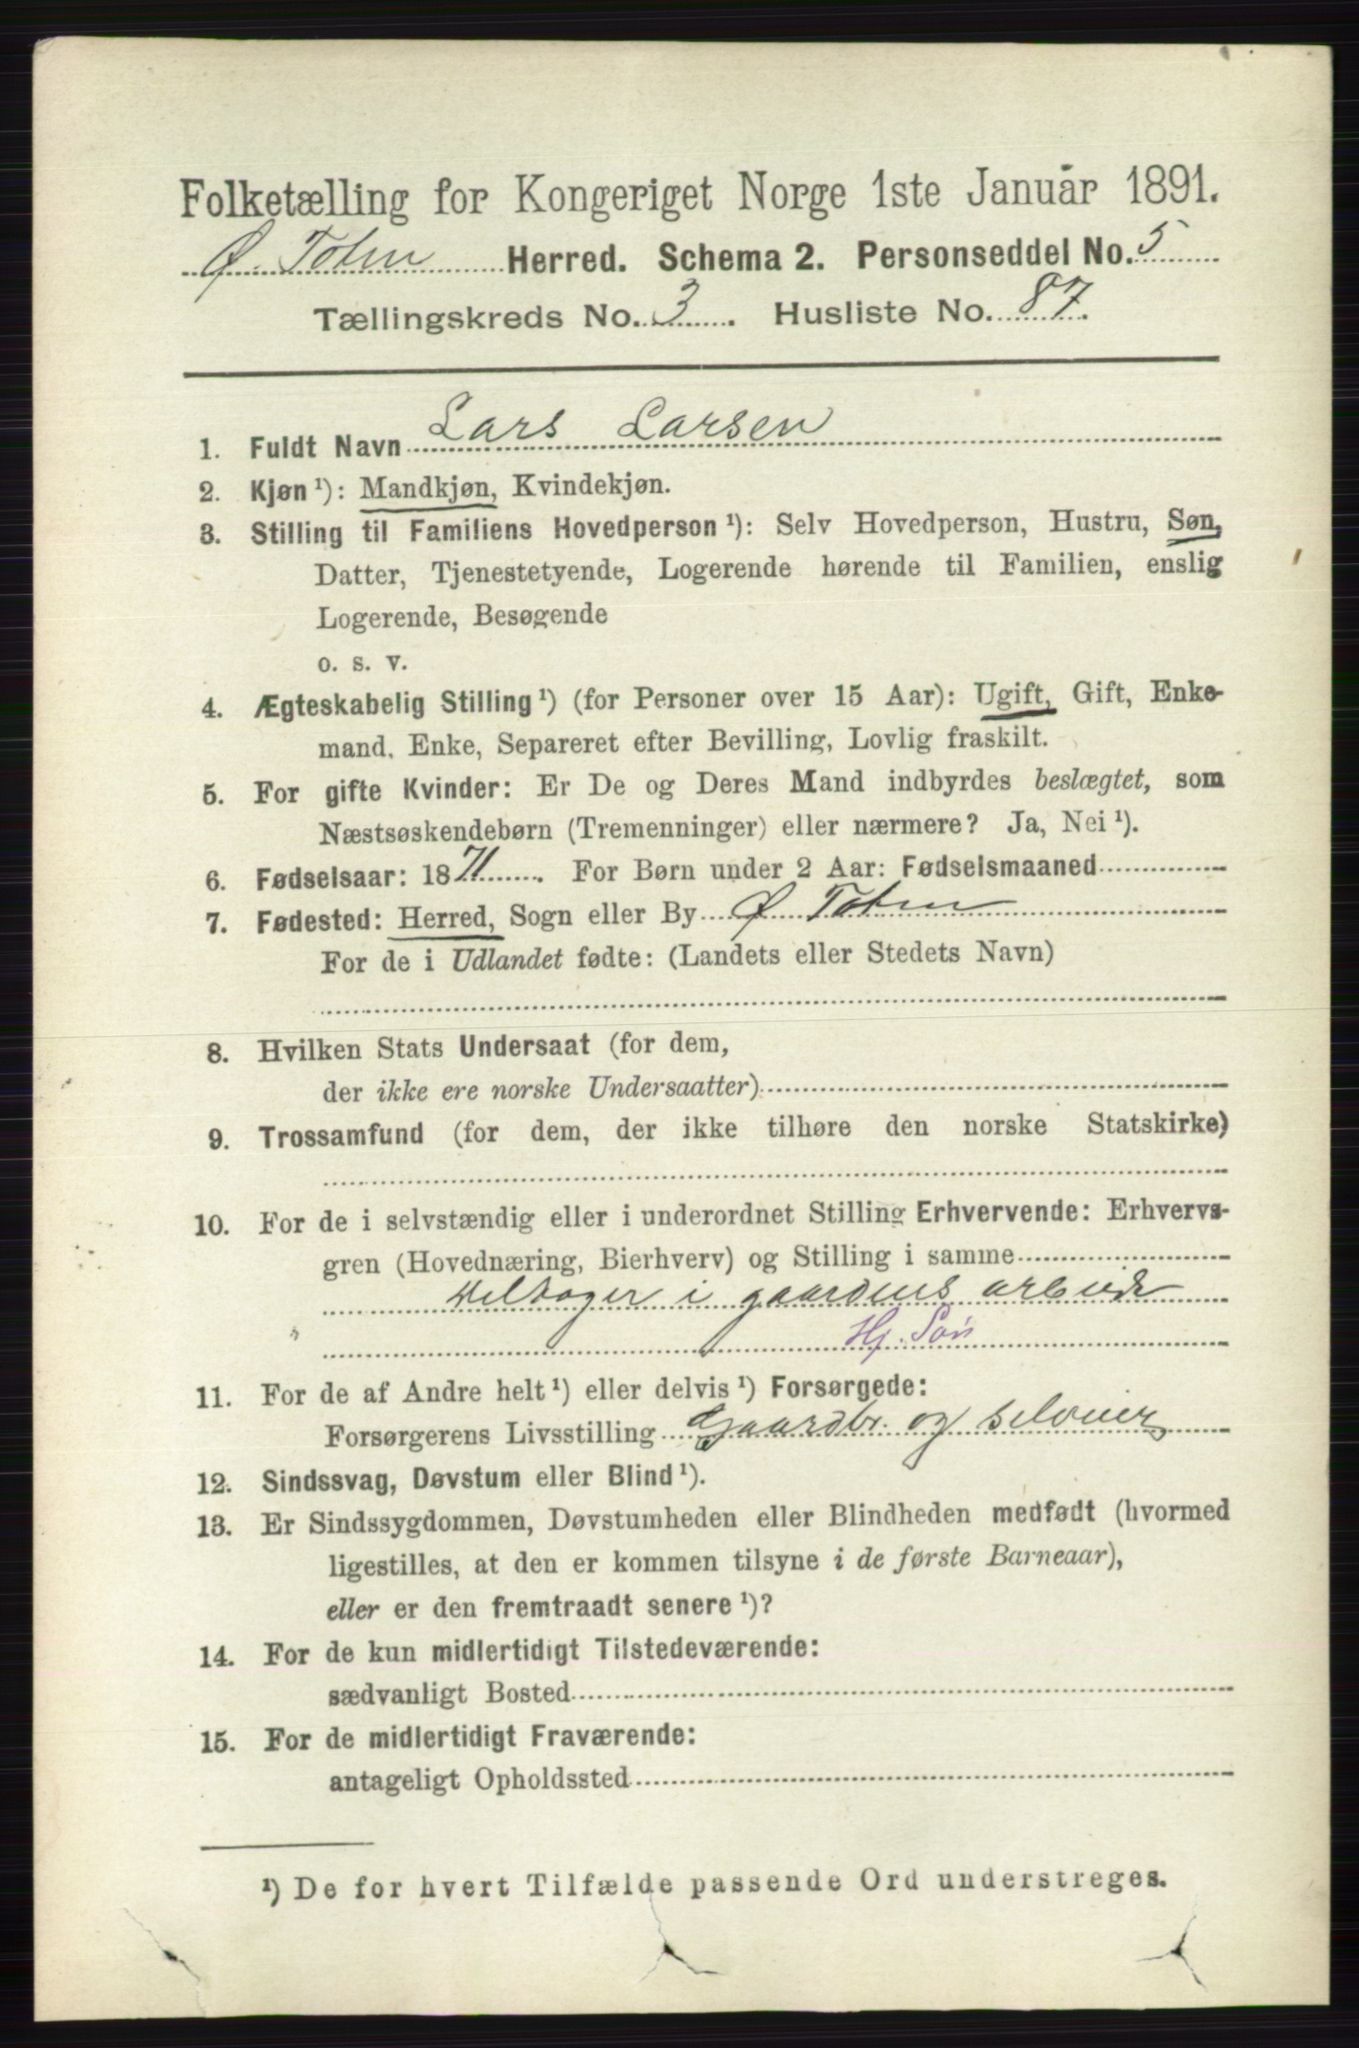 Folketælling for Kongeriget Norge 1ste Januar 1891.
Ø. Toten Herred. Schema 2. Personseddel No. 5
Tællingskreds No. 3. Husliste No. 87.
1. Fuldt Navn Lars Larsen
2. Kjøn ¹): Mandkjøn, Kvindekjøn.
3. Stilling til Familiens Hovedperson ¹): Selv Hovedperson, Hustru, Søn,
Datter, Tjenestetyende, Logerende hørende til Familien, enslig
Logerende, Besøgende
o. s. v.
4. Ægteskabelig Stilling ¹) (for Personer over 15 Aar): Ugift, Gift, Enke-
mand, Enke, Separeret efter Bevilling, Lovlig fraskilt.
5. For gifte Kvinder: Er De og Deres Mand indbyrdes beslægtet, som
Næstsøskendebørn (Tremenninger) eller nærmere? Ja, Nei ¹).
6. Fødselsaar: 1871. For Børn under 2 Aar: Fødselsmaaned
7. Fødested: Herred, Sogn eller By Ø. Toten
For de i Udlandet fødte: (Landets eller Stedets Navn)
8. Hvilken Stats Undersaat (for dem,
der ikke ere norske Undersaatter)
9. Trossamfund (for dem, der ikke tilhøre den norske Statskirke)
10. For de i selvstændig eller i underordnet Stilling Erhvervende: Erhvervs-
gren (Hovednæring, Bierhverv) og Stilling i samme
Deltager i gaardens arbeide
Hj. Søn
11. For de af Andre helt ¹) eller delvis ¹) Forsørgede:
Forsørgerens Livsstilling Gaardbr. og selveier
12. Sindssvag, Døvstum eller Blind ¹).
13. Er Sindssygdommen, Døvstumheden eller Blindheden medfødt (hvormed
ligestilles, at den er kommen tilsyne i de første Barneaar),
eller er den fremtraadt senere ¹)?
14. For de kun midlertidigt Tilstedeværende:
sædvanligt Bosted
15. For de midlertidigt Fraværende:
antageligt Opholdssted
¹) De for hvert Tilfælde passende Ord understreges.